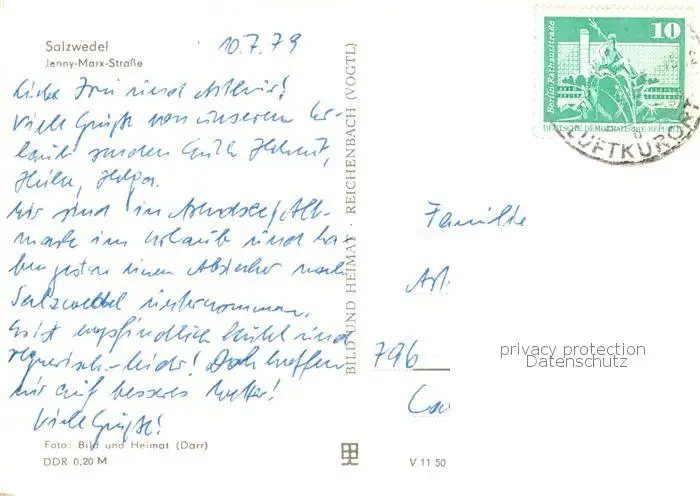 Salzwedel
Jenny-Marx-Straße
10.7.79
Liebe Irm und Arthur!
Viele Grüße von unserem Ur-
laub senden Euch Helmut,
Helga.
Wir sind in Arendsee/Alt-
mark im Urlaub und ha-
ben gestern einen Abstecher nach
Salzwedel unternommen.
Es ist empfindlich kühl und
regnerisch-leider! Doch hoffen
wir auf besseres Wetter!
Viele Grüße!
Foto: Bild und Heimat (Darr)
DDR 0,20 M
BILD UND HEIMAT · REICHENBACH (VOGTL)
V 11 50
10
Berlin-Rathausstraße
DEUTSCHE DEMOKRATISCHE REPUBLIK
LUFTKURORT
Familie
796
privacy protection
Datenschutz